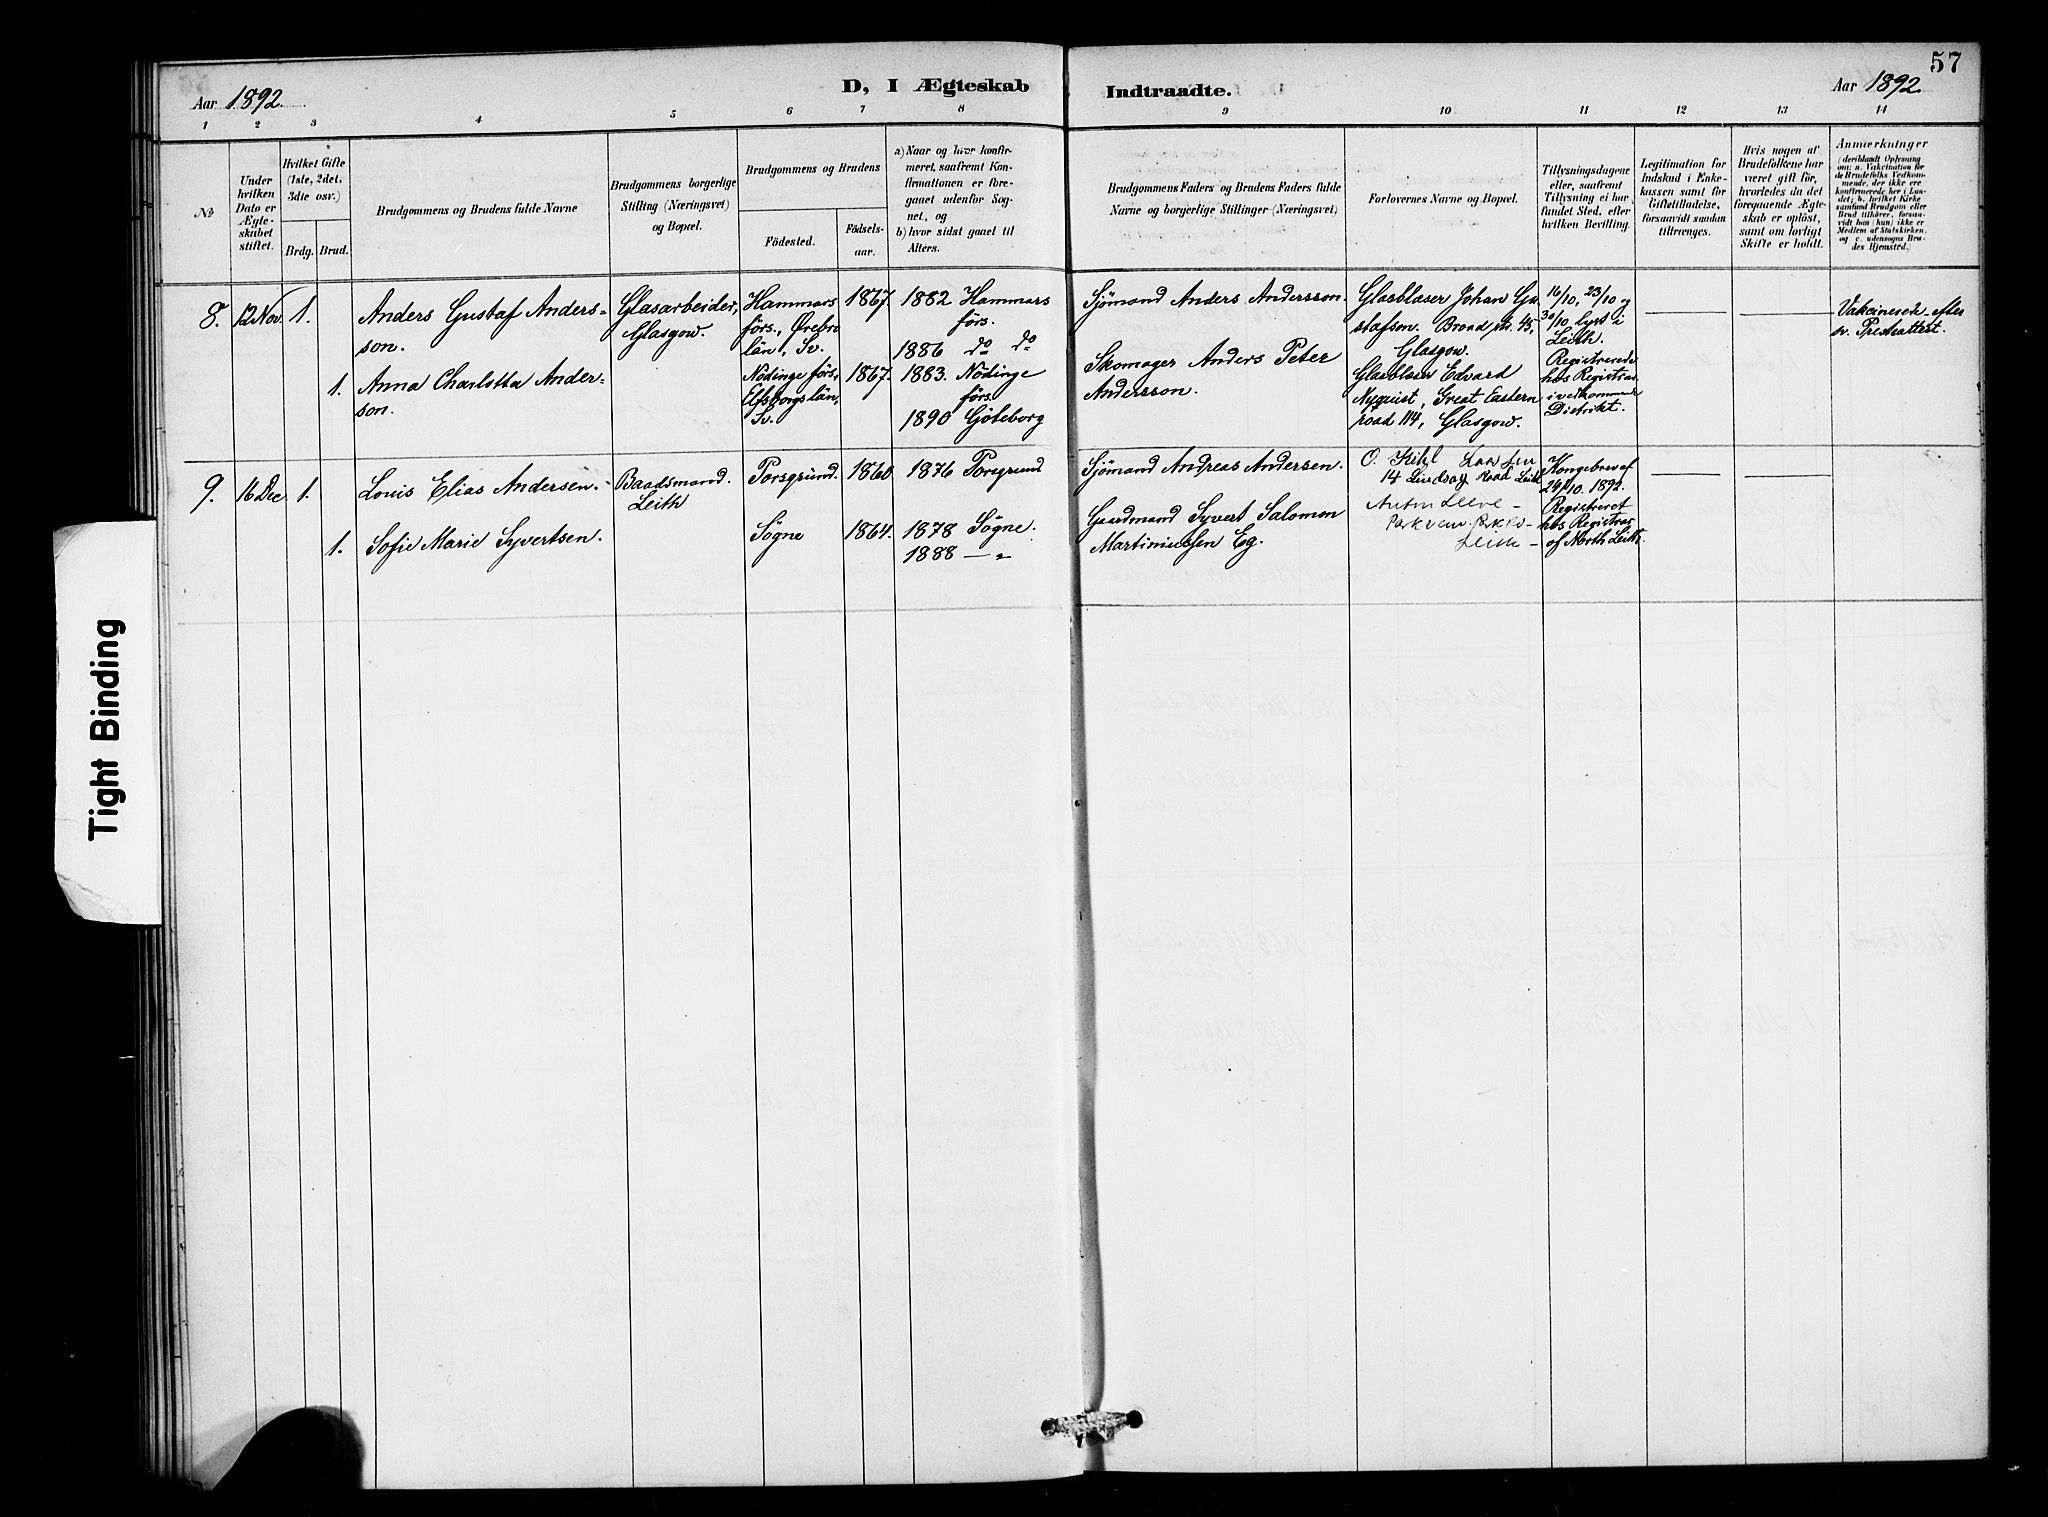 57
Aar 1892.
D, I Ægteskab
Indtraadte.
Aar 1892
1 2 3 4 5 6 7 8 9 10 11 12 13 14
No
Under hvilken Dato er Ægte-skabet stiftet.
Hvilket Gifte (1ste, 2det, 3die osv.)
Brdg. Brud.
Brudgommens og Brudens fulde Navne
Brudgommens borgerlige
Stilling (Næringsvei)
og Bopæl.
Brudgommens og Brudens
Födested.
Födsels-
aar.
a) Naar og hvor konfir-
meret, saafremt Kon-
firmationen er fore-
gaaet udenfor Sog-
net, og
b) hvor sidst gaaet til
Alters.
Brudgommens Faders og Brudens Faders fulde
Navne og borgerlige Stillinger (Næringsvei)
Forlovernes Navne og Bopæl.
Tillysningsdagene
eller, saafremt
Tillysning ei har
fundet Sted, efter
hvilken Bevilling.
Legitimation for
Indskud i Enke-
kassen samt for
Giftetilladelse,
forsaavidt saadan
tiltrænges.
Hvis nogen af
Brudefolkene har
været gift för,
hvorledes da det
foregaaende Ægte-
skab er oplöst,
samt om lovligt
Skifte er holdt.
Anmerkninger
(deriblandt Oplysning
om: a. Vakcination for
de Brudefolks Vedkom-
mende, der ikke ere
konfirmerede her i Lan-
det; b. hvilket Kirke
samfund Brudgom eller
Brud tilhører, forsaa-
vidt han (hun) ikke er
Medlem af Statskirken,
og c. udensogns Bru-
des Hjemsted.)
8. 12 Nov. 1.
Anders Gustaf Anders-
son.
Glasarbeider,
Glasgow.
Hammars
förs., Örebro
län, Sv.
1867.
1882 Hammars
förs.
1886 do do
Sjömand Anders Andersson.
Glasblaser Johan Gu
stafsen. Broad str. 45,
Glasgow.
16/10, 23/10 og
30/10 lyst i
Leith.
Registrerede
hos Registrar
i vedkommende
Distrikt.
Vakcinerede efter
sv. Presteattest.
1. Anna Charlotta Ander-
son.
Nödinge förs.,
Elfsborgs län,
Sv.
1867.
1883. Nödinge
förs.
1890 Göteborg
Skomager Anders Peter
Andersson.
Glasblaser Edvard
Nyquist, Great Eastern
road 114, Glasgow.
9. 16 Dec 1.
Louis Elias Andersen.
Baadsmand.
Leith
Porsgrund.
1860
1876 Porsgrund
Sjömand Andreas Andersen.
14 Lindsay Road Leith
Kongebrev af
24/10. 1892.
Registreret
hos Registrar
of North Leith.
1. Sofie Marie Syvertsen.
Sögne
1864.
1878 Sögne.
1888 — "
Gaardmand Syvert Salomon
Martiniussen Eg.
Leith
Tight Binding